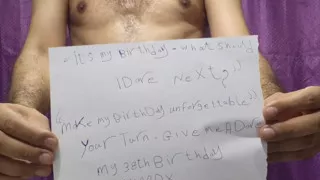 " It's my Birthday - what should
I Dare Next? "
"Make my BirthDay unforgettable"
Your Turn. Give me A Dare
my 38th Birthday